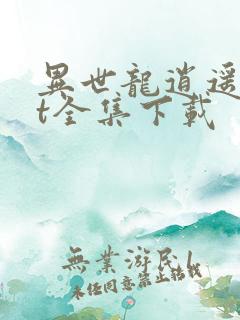 異世龍逍遥
t全集下载
無業游民l
未任同意禁止轉載